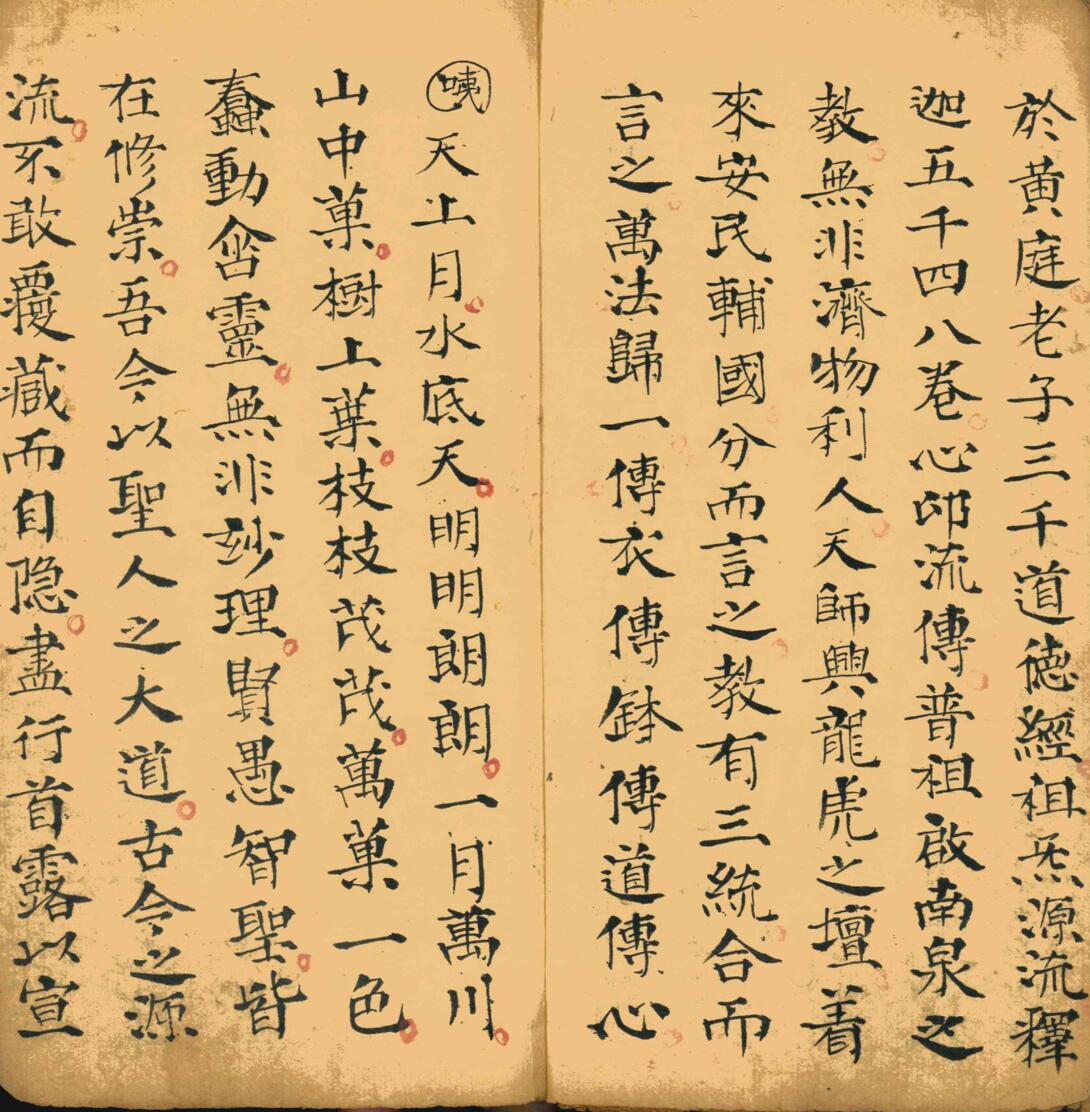 於黄庭老子三千道德經祖炁源流釋
迦五千四八卷心印流傳普祖啟南泉之
教無非濟物利人天師興龍虎之壇着
來安民輔國分而言之教有三統合而
言之萬法歸一傳衣傳鉢傳道傳心
咦天上月水底天明明朗朗一月萬川
山中菓樹上葉枝枝茂茂萬菓一色
蠢動含靈無非玅理賢愚智聖皆
在修崇吾今以聖人之大道古今之源
流不敢覆藏而自隐盡行首露以宣